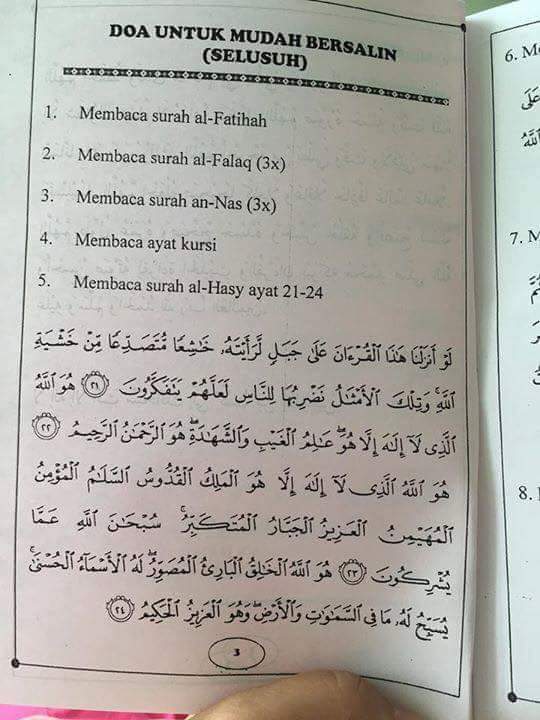 DOA UNTUK MUDAH BERSALIN
(SELUSUH)
1. Membaca surah al-Fatihah
2. Membaca surah al-Falaq (3x)
3. Membaca surah an-Nas (3x)
4. Membaca ayat kursi
5. Membaca surah al-Hasy ayat 21-24
لَوْ أَنزَلْنَا هَٰذَا ٱلْقُرْءَانَ عَلَىٰ جَبَلٍ لَّرَأَيْتَهُۥ خَٰشِعًا مُّتَصَدِّعًا مِّنْ خَشْيَةِ
ٱللَّهِ ۚ وَتِلْكَ ٱلْأَمْثَٰلُ نَضْرِبُهَا لِلنَّاسِ لَعَلَّهُمْ يَتَفَكَّرُونَ ٢١ هُوَ ٱللَّهُ
ٱلَّذِى لَآ إِلَٰهَ إِلَّا هُوَ ۖ عَٰلِمُ ٱلْغَيْبِ وَٱلشَّهَٰدَةِ ۖ هُوَ ٱلرَّحْمَٰنُ ٱلرَّحِيمُ ٢٢
هُوَ ٱللَّهُ ٱلَّذِى لَآ إِلَٰهَ إِلَّا هُوَ ٱلْمَلِكُ ٱلْقُدُّوسُ ٱلسَّلَٰمُ ٱلْمُؤْمِنُ
ٱلْمُهَيْمِنُ ٱلْعَزِيزُ ٱلْجَبَّارُ ٱلْمُتَكَبِّرُ ۚ سُبْحَٰنَ ٱللَّهِ عَمَّا
يُشْرِكُونَ ٢٣ هُوَ ٱللَّهُ ٱلْخَٰلِقُ ٱلْبَارِئُ ٱلْمُصَوِّرُ ۖ لَهُ ٱلْأَسْمَآءُ ٱلْحُسْنَىٰ ۚ
يُسَبِّحُ لَهُۥ مَا فِى ٱلسَّمَٰوَٰتِ وَٱلْأَرْضِ ۖ وَهُوَ ٱلْعَزِيزُ ٱلْحَكِيمُ ٢٤
3
6.
عَلَى
اللَّهُ
7.
8.